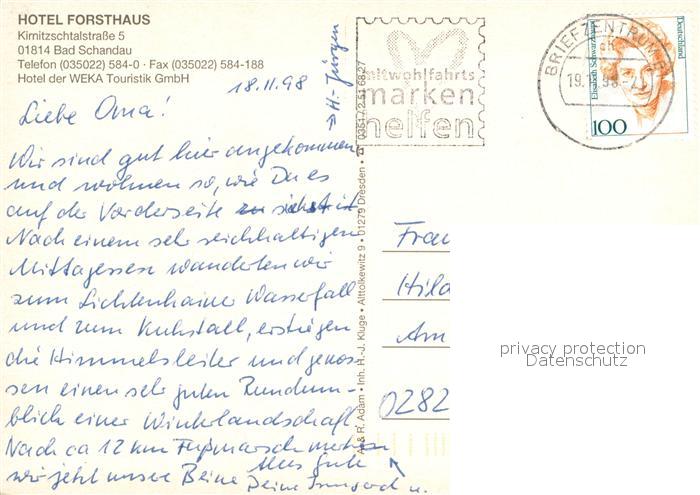 HOTEL FORSTHAUS
Kirnitzschtalstraße 5
01814 Bad Schandau
Telefon (035022) 584-0 · Fax (035022) 584-188
Hotel der WEKA Touristik GmbH
18.11.98
Liebe Oma!
Wir sind gut hier angekommen
und wohnen so, wie Du es
auf der Vorderseite
Nach einem sehr reichhaltigen
Mittagessen wanderten wir
zum Lichtenhainer Wasserfall
und zum Kuhstall, erstiegen
die Himmelsleiter und genos-
sen einen sehr guten Rundum-
blick einer Winterlandschaft
Nach ca 12 km Fußmarsch merken
wir jetzt unsere Beine
Alles Gute
Deine Irmgard u.
H.-Jürgen
A. & R. Adam • Inh. H.-J. Kluge • Alttolkewitz 9 • 01279 Dresden • ☎ 0351 / 2 51 68 27
mit wohlfahrts
marken
helfen
BRIEFZENTRUM
19.11.98
Elisabeth Schwarzhaupt
Deutschland
100
Frau
Hild
Am
0282
privacy protection
Datenschutz